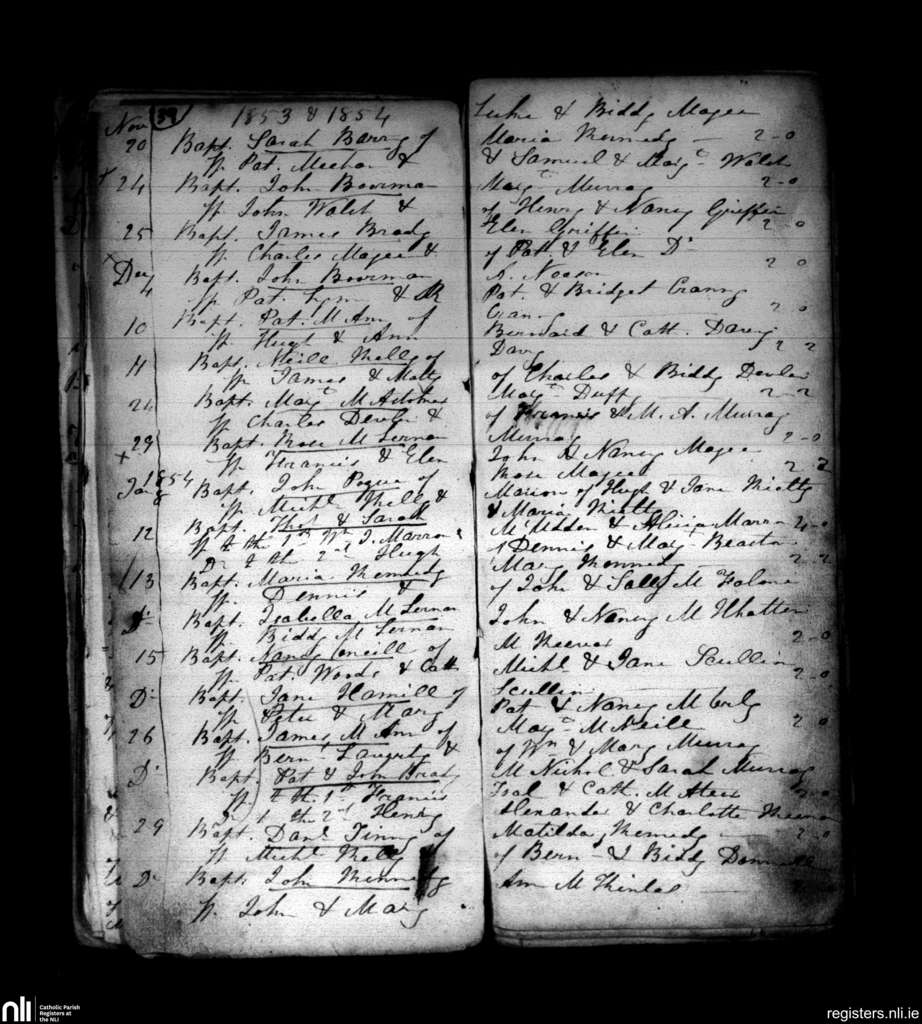 39
1853 & 1854
Nov
20 Bapt. Sarah Barry of
Sp. Pat. Meehan &
+ 24 Bapt. John Bowman
Sp. John Walsh &
25 Bapt. James Brady
Sp. Charles Magee &
Dec
4 Bapt. John Bowman
Sp. Pat. Lynn &
10 Bapt. Pat. M Ann of
Sp. Hugh & Ann
Bapt. Neill Kelly of
Sp. James & Matty
24 Bapt. Mary
Sp. Charles Devlin &
29 Bapt. Rose M Lernan
+ Sp. Francis & Elen
1854
Jany
8 Bapt. John Pogue of
Sp. Michl. Kelly &
12 Bapt. & Sarah
Sp. to the 1st Wm. J. Marron
Do. to the 2nd Hugh
13 Bapt. Maria Kennedy
Sp. Dennis &
Do. Bapt. Isabella M Lernan
Sp. Biddy M Lernan
15 Bapt. Nancy Oneill of
Sp. Pat. Woods & Cath
Do. Bapt. Jane Hamill of
Sp. Peter & Mary
26 Bapt. James M Ann of
Sp. Bern. &
Do. Bapt. Pat & John Brady
Sp. to th. 1st Francis
to the 2nd Henry
29 Bapt. Danl. Finny of
Sp. Michl. Kelly
Do. Bapt. John Kennedy
Sp. John & Mary
Luke & Biddy Magee
Maria Kennedy 2-0
& Samuel & Mary Walsh
Mary Murray 2-0
of Henry & Nancy Griffin
Elen Griffin 2 0
of Pat & Elen Do.
A. Noason 2 0
Pat. & Bridget Cranny
Cranny 2 0
Bernard & Cath. Darcy
2 2
of Charles & Biddy Devlin
Mary Duffy 2-2
of Francis & M. A. Murray
Murray 2-0
John & Nancy Magee
Rose Magee 2 2
Marion of Hugh & Jane
& Maria
& Alicia Marron 4-0
of Dennis & Mary
Mary Kennedy 2-2
of John & Sally M
John & Nancy M
M Keever 2-0
Michl. & Jane Scullin
Scullin 2-0
Pat & Nancy M
Mary M Neill 2 0
of Wm & Mary Murray
M Nichol & Sarah Murray
& Cath. M Ateer 2-0
Alexander & Charlotte
Matilda Kennedy 2 0
of Bern & Biddy
Ann M Kinlas
nli
Catholic Parish
Registers at
the NLI
registers.nli.ie